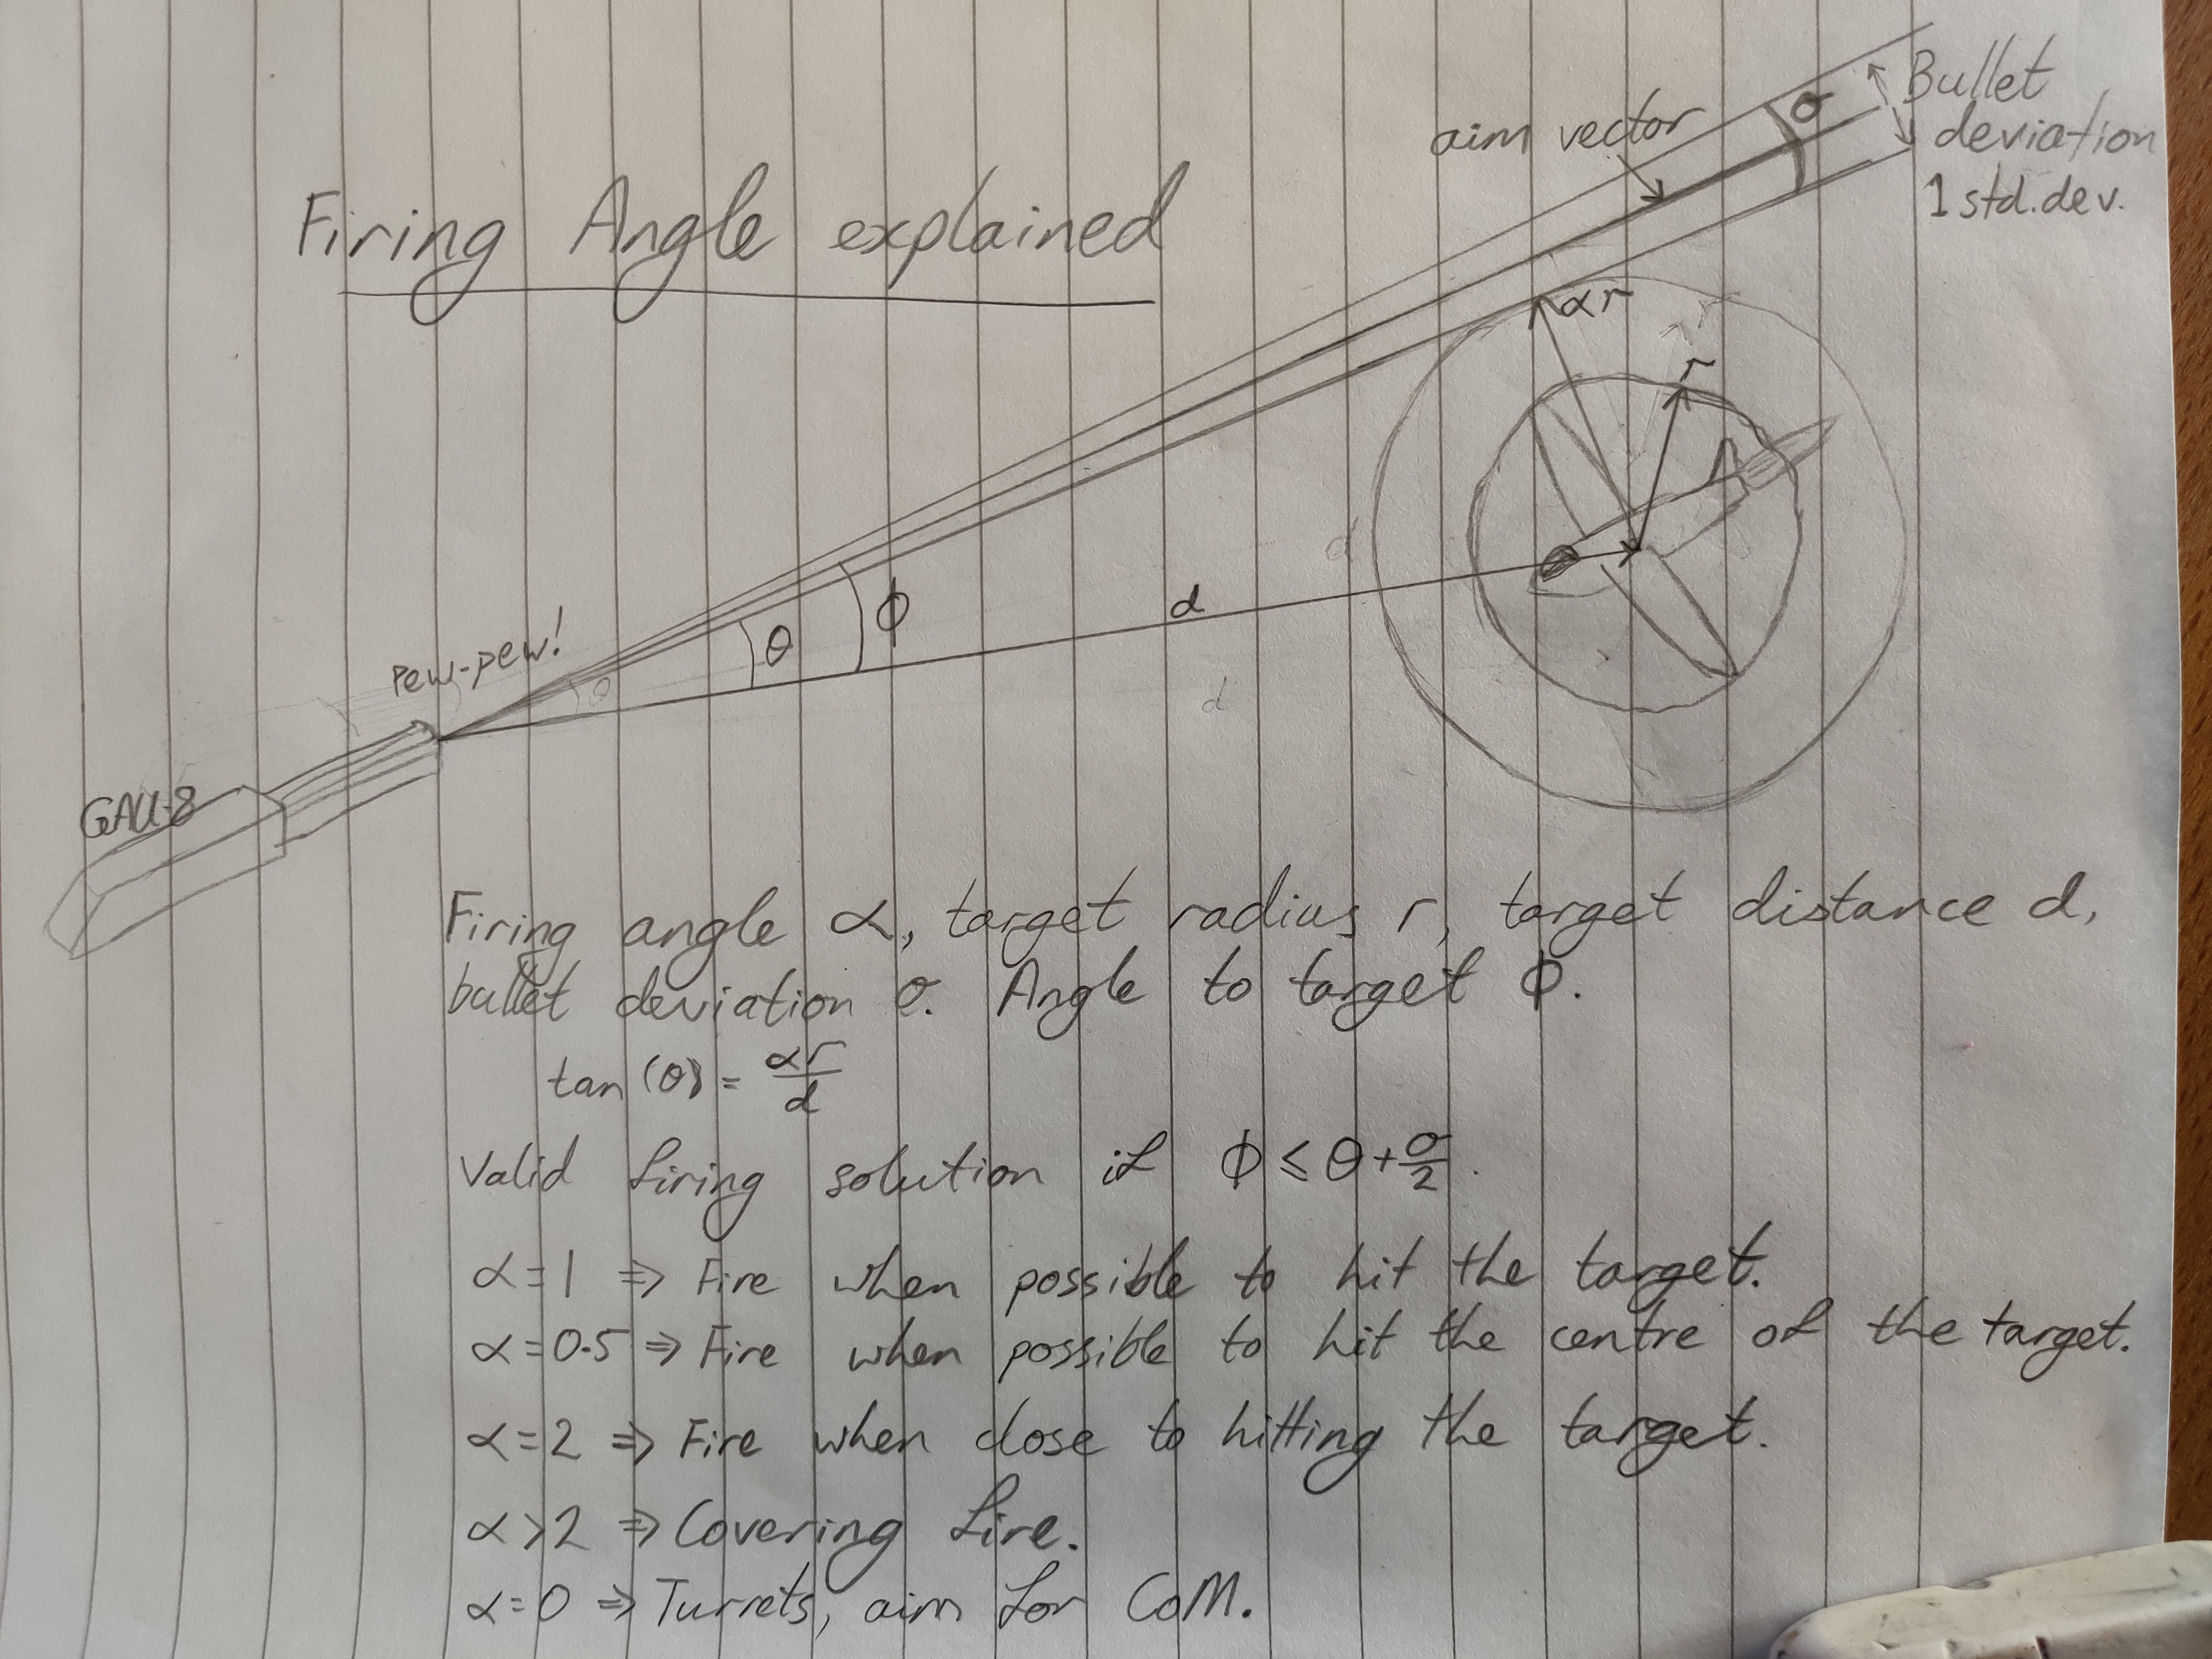 Firing Angle explained
aim vector
σ
Bullet
deviation
1 std. dev.
αr
r
d
θ
ϕ
d
θ
d
Pew-pew!
GAU-8
Firing angle α, target radius r, target distance d,
bullet deviation σ. Angle to target ϕ.
tan(θ) = αr/d
Valid firing solution if ϕ ≤ θ + σ/2.
α=1 ⇒ Fire when possible to hit the target.
α=0.5 ⇒ Fire when possible to hit the centre of the target.
α=2 ⇒ Fire when close to hitting the target.
α>2 ⇒ Covering fire.
α=0 ⇒ Turrets, aim for CoM.